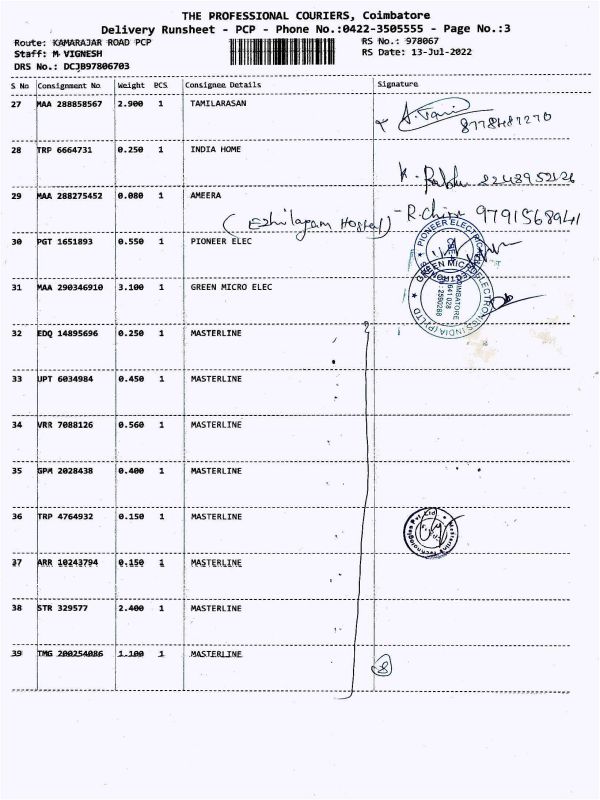 THE PROFESSIONAL COURIERS, Coimbatore
Delivery Runsheet - PCP - Phone No.:0422-3505555 - Page No.:3
Route: KAMARAJAR ROAD PCP
RS No.: 978067
Staff: M VIGNESH
RS Date: 13-Jul-2022
DRS No.: DCJB97806703
S No Consignment No Weight PCS Consignee Details Signature
27 MAA 288858567 2.900 1 TAMILARASAN
8778487270
28 TRP 6664731 0.250 1 INDIA HOME
29 MAA 288275452 0.080 1 AMEERA
9791568941
30 PGT 1651893 0.550 1 PIONEER ELEC
31 MAA 290346910 3.100 1 GREEN MICRO ELEC
32 EDQ 14895696 0.250 1 MASTERLINE
33 UPT 6034984 0.450 1 MASTERLINE
34 VRR 7088126 0.560 1 MASTERLINE
35 GPM 2028438 0.400 1 MASTERLINE
36 TRP 4764932 0.150 1 MASTERLINE
37 ARR 10243794 0.150 1 MASTERLINE
38 STR 329577 2.400 1 MASTERLINE
39 TMG 200254086 1.100 1 MASTERLINE
8